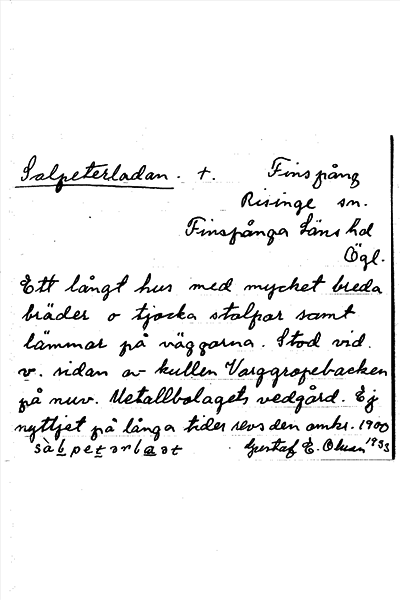 Salpeterladan. +. Finspång
Risinge sn.
Finspånga Läns hd
Ögl.
Ett långt hus med mycket breda
bräder o tjocka stolpar samt
lämmar på väggarna. Stod vid
v. sidan av kullen Varggropebacken
på nuv. Metallbolagets vedgård. Ej
nyttjet på långa tider revs den omkr. 1900
Gustaf E. Olsson 1933